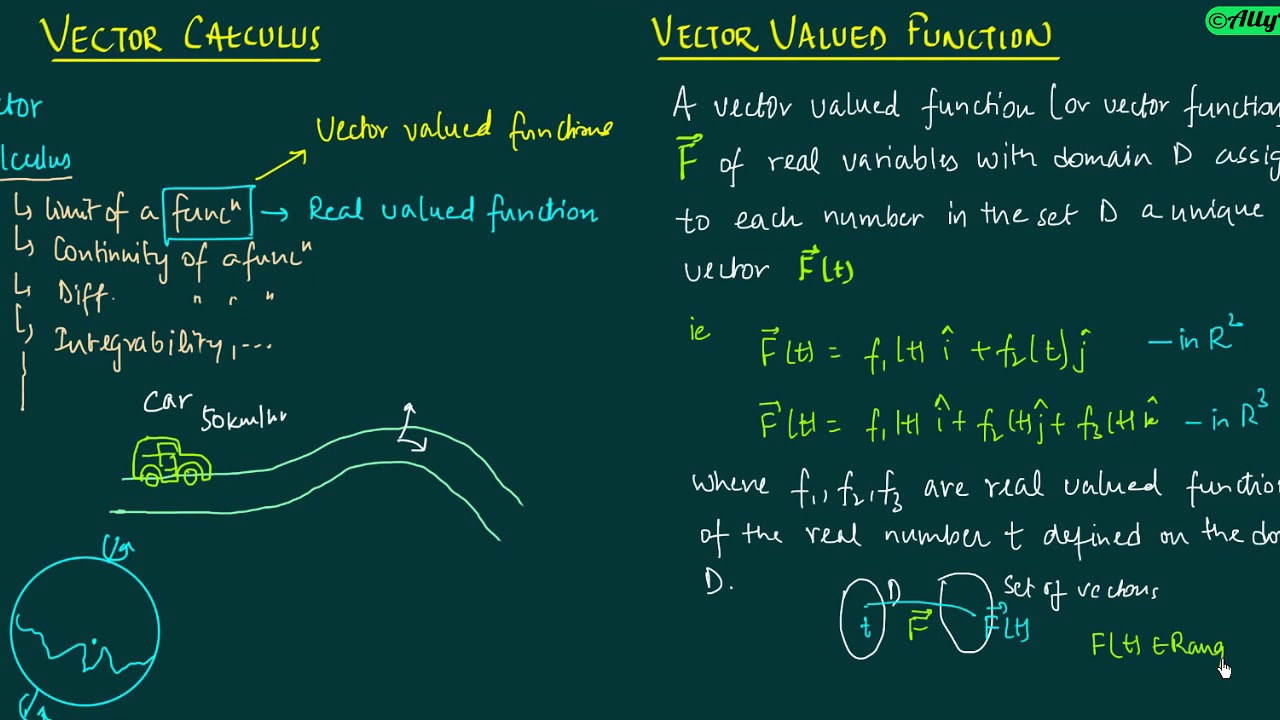 VECTOR CALCULUS
ctor
lculus
Vector valued functions
↳ limit of a funcⁿ → Real valued function
↳ Continuity of a funcⁿ
↳ Diff. " " "
↳ Integrability, ...
Car
50km/hr
©Ally
VECTOR VALUED FUNCTION
A vector valued function (or vector function
F⃗ of real variables with domain D assig
to each number in the set D a unique
vector F⃗(t)
ie F⃗(t) = f₁(t) î + f₂(t) ĵ — in R²
F⃗(t) = f₁(t) î + f₂(t) ĵ + f₃(t) k̂ — in R³
where f₁, f₂, f₃ are real valued functio
of the real number t defined on the do
D.
D Set of vectors
t F⃗ F⃗(t)
F(t) ∈ Rang